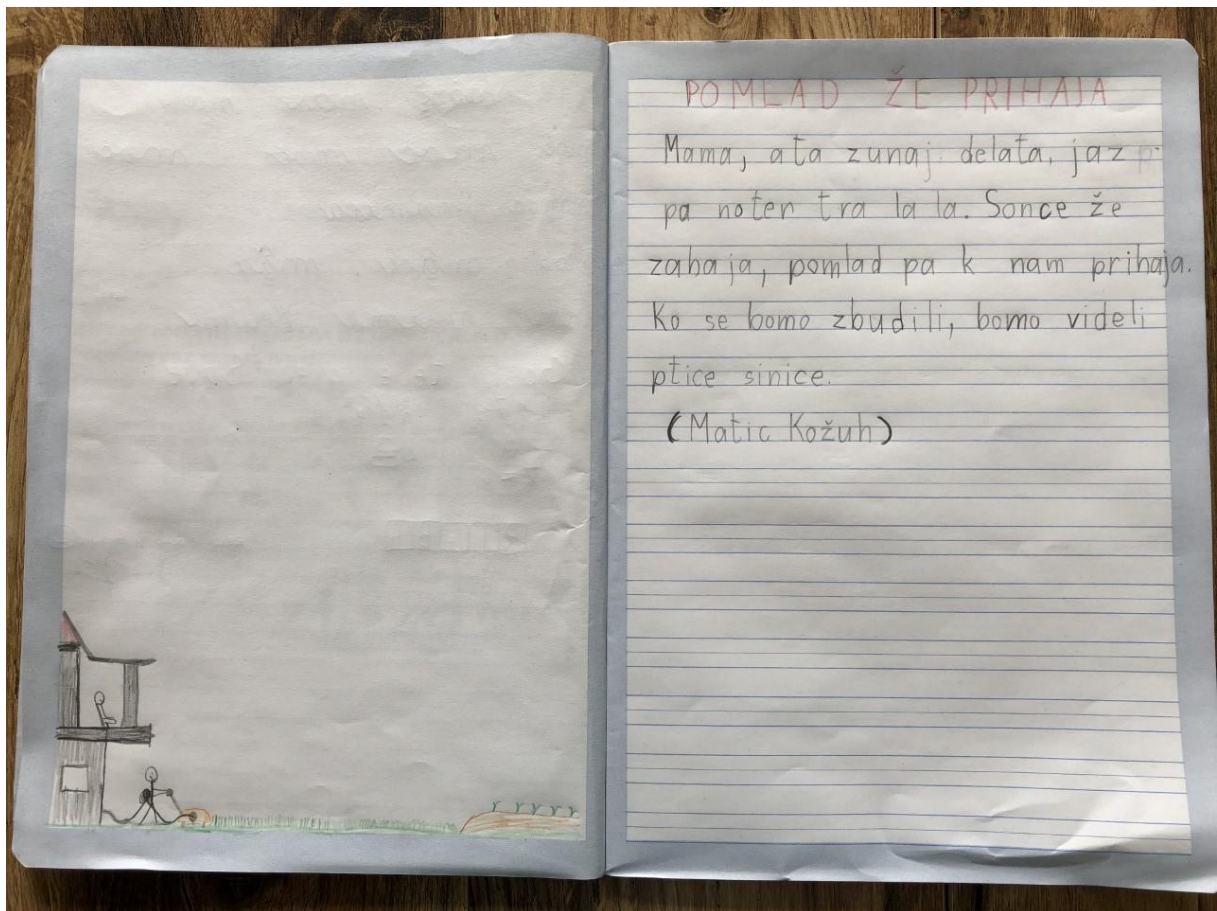 POMLAD ŽE PRIHAJA
Mama, ata zunaj delata, jaz
pa noter tra la la. Sonce že
zahaja, pomlad pa k nam prihaja.
Ko se bomo zbudili, bomo videli
ptice sinice.
(Matic Kožuh)